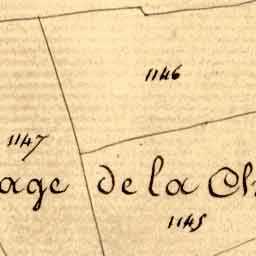 1146
1147
age de la Ch
1145